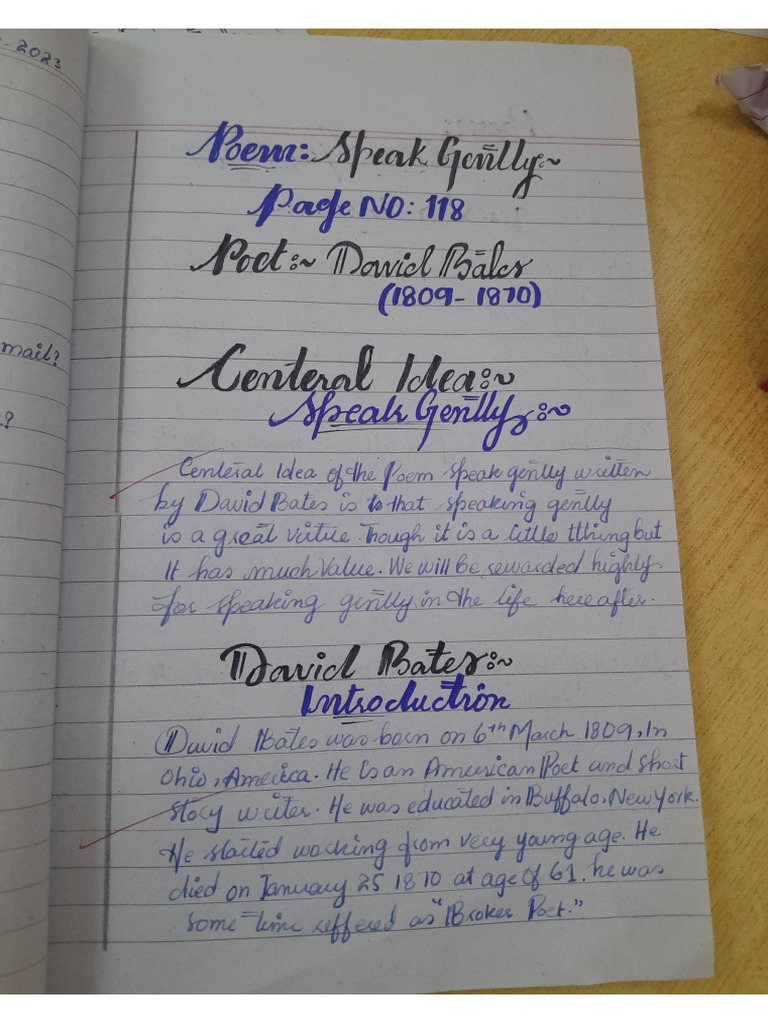 . 2023
Poem: Speak Gently:~
Page NO: 118
Poet:~ David Bates
(1809-1870)
mail?
?
Centeral Idea:~
Speak Gently:~
Centeral Idea of the Poem speak gently written
by David Bates is to that speaking gently
is a great virtue. Though it is a little tthing but
It has much Value. We will be rewarded highly
for speaking gently in the life here after.
David Bates:~
Introduction
David Bates was born on 6th March 1809, In
Ohio, America. He is an American Poet and short
story writer. He was educated in Buffalo, New York.
He started working from very young age. He
died on January 25 1870 at age of 61. he was
some time reffered as "Broker Poet."